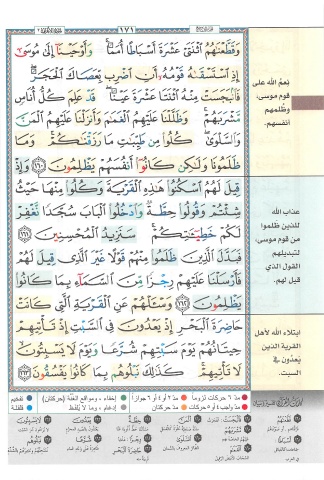 ١٧١
وَقَطَّعْنَٰهُمُ ٱثْنَتَىْ عَشْرَةَ أَسْبَاطًا أُمَمًا ۚ وَأَوْحَيْنَآ إِلَىٰ مُوسَىٰٓ
إِذِ ٱسْتَسْقَىٰهُ قَوْمُهُۥٓ أَنِ ٱضْرِب بِّعَصَاكَ ٱلْحَجَرَ ۖ
فَٱنۢبَجَسَتْ مِنْهُ ٱثْنَتَا عَشْرَةَ عَيْنًا ۖ قَدْ عَلِمَ كُلُّ أُنَاسٍ
مَّشْرَبَهُمْ ۚ وَظَلَّلْنَا عَلَيْهِمُ ٱلْغَمَٰمَ وَأَنزَلْنَا عَلَيْهِمُ ٱلْمَنَّ
وَٱلسَّلْوَىٰ ۖ كُلُوا۟ مِن طَيِّبَٰتِ مَا رَزَقْنَٰكُمْ ۚ وَمَا
ظَلَمُونَا وَلَٰكِن كَانُوٓا۟ أَنفُسَهُمْ يَظْلِمُونَ ١٦٠ وَإِذْ
قِيلَ لَهُمُ ٱسْكُنُوا۟ هَٰذِهِ ٱلْقَرْيَةَ وَكُلُوا۟ مِنْهَا حَيْثُ
شِئْتُمْ وَقُولُوا۟ حِطَّةٌ وَٱدْخُلُوا۟ ٱلْبَابَ سُجَّدًا نَّغْفِرْ
لَكُمْ خَطِيٓـَٰٔتِكُمْ ۚ سَنَزِيدُ ٱلْمُحْسِنِينَ ١٦١
فَبَدَّلَ ٱلَّذِينَ ظَلَمُوا۟ مِنْهُمْ قَوْلًا غَيْرَ ٱلَّذِى قِيلَ لَهُمْ
فَأَرْسَلْنَا عَلَيْهِمْ رِجْزًا مِّنَ ٱلسَّمَآءِ بِمَا كَانُوا۟
يَظْلِمُونَ ١٦٢ وَسْـَٔلْهُمْ عَنِ ٱلْقَرْيَةِ ٱلَّتِى كَانَتْ
حَاضِرَةَ ٱلْبَحْرِ إِذْ يَعْدُونَ فِى ٱلسَّبْتِ إِذْ تَأْتِيهِمْ
حِيتَانُهُمْ يَوْمَ سَبْتِهِمْ شُرَّعًا وَيَوْمَ لَا يَسْبِتُونَ ۙ
لَا تَأْتِيهِمْ ۚ كَذَٰلِكَ نَبْلُوهُم بِمَا كَانُوا۟ يَفْسُقُونَ ١٦٣
نِعَمُ الله على
قوم موسى،
وظُلمهم
أنفسهم.
عذاب الله
للذين ظلموا
من قوم موسى،
لتبديلهم
القول الذي
قيل لهم.
ابتلاء الله لأهل
القرية الذين
يعدون في
السبت.
مدّ ٦ حركات لزوماً
مدّ ٢ أو ٤ أو ٦ جوازاً
إخفاء، ومواقع الغنّة (حركتان)
تفخيم
مدّ واجب ٤ أو ٥ حركات
مدّ حركتان
إدغام، وما لا يُلفظ
قلقلة